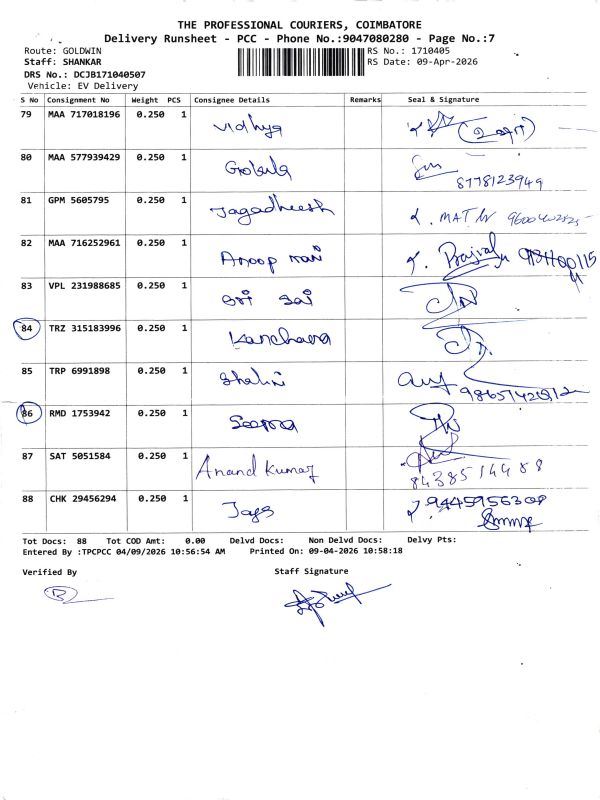 THE PROFESSIONAL COURIERS, COIMBATORE
Delivery Runsheet - PCC - Phone No.:9047080280 - Page No.:7
Route: GOLDWIN RS No.: 1710405
Staff: SHANKAR RS Date: 09-Apr-2026
DRS No.: DCJB171040507
Vehicle: EV Delivery
S No Consignment No Weight PCS Consignee Details Remarks Seal & Signature
79 MAA 717018196 0.250 1 Vidhya
80 MAA 577939429 0.250 1 8778123949
81 GPM 5605795 0.250 1 Jagadheesh
82 MAA 716252961 0.250 1 Anoop
83 VPL 231988685 0.250 1 Sri Sai
84 TRZ 315183996 0.250 1 Kanchana
85 TRP 6991898 0.250 1 Shalini
86 RMD 1753942 0.250 1
87 SAT 5051584 0.250 1 Anand Kumar 8438514488
88 CHK 29456294 0.250 1
Tot Docs: 88 Tot COD Amt: 0.00 Delvd Docs: Non Delvd Docs: Delvy Pts:
Entered By :TPCPCC 04/09/2026 10:56:54 AM Printed On: 09-04-2026 10:58:18
Verified By Staff Signature